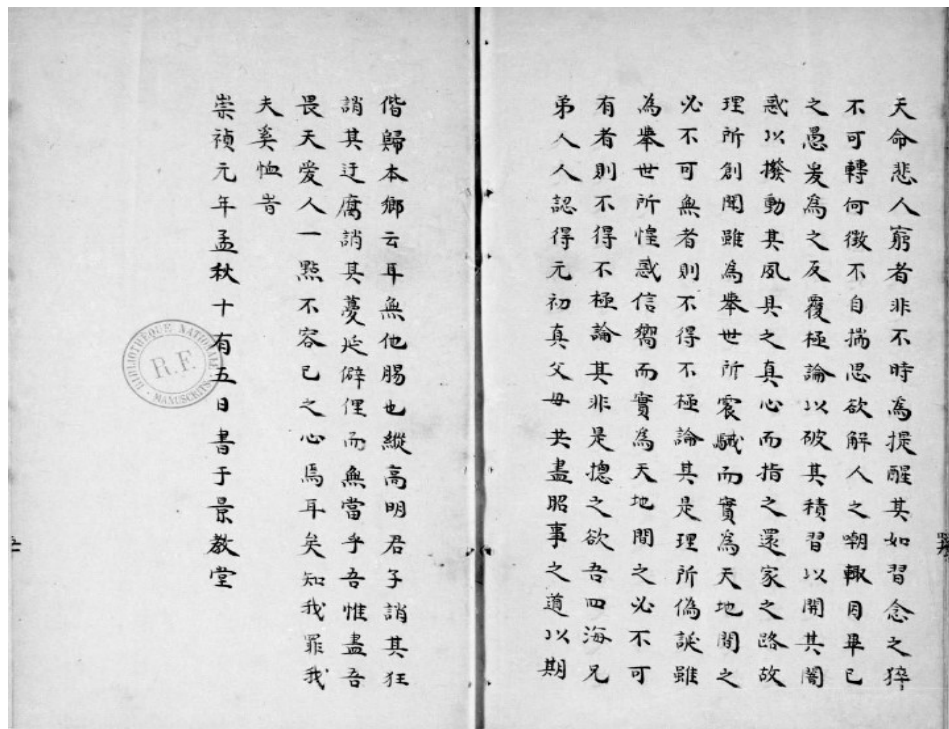 天命悲人窮者非不時為提醒其如習念之猝
不可轉何徵不自揣思欲解人之嘲輙月畢已
之愚爰為之反覆極論以破其積習以開其闇
惑以撥動其夙具之真心而指之還家之路故
理所創聞雖為舉世所震駴而實為天地間之
必不可無者則不得不極論其是理所偽誕雖
為舉世所惶惑信嚮而實為天地間之必不可
有者則不得不極論其非是揔之欲吾四海兄
弟人人認得元初真父母共盡昭事之道以期
偕歸本鄉云耳無他腸也縱高明君子誚其狂
誚其迂腐誚其蔓延僻俚而無當乎吾惟盡吾
畏天愛人一點不容已之心焉耳矣知我罪我
夫奚恤旹
崇禎元年孟秋十有五日書于景教堂
BIBLIOTHÈQUE NATIONALE
R.F.
MANUSCRITS